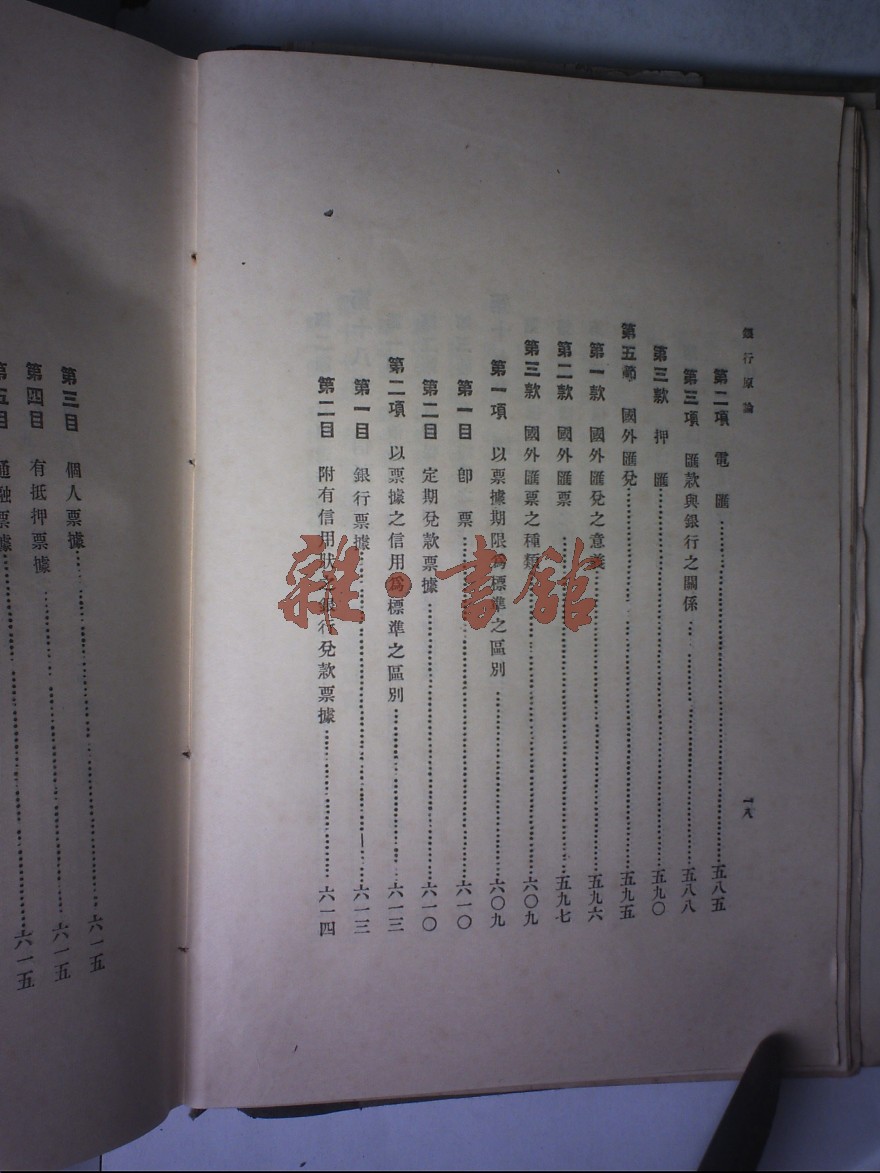 銀行原論
一八
第二項 電 匯……五八五
第三項 匯款與銀行之關係……五八八
第三款 押 匯……五九〇
第五節 國外匯兌……五九五
第一款 國外匯兌之意義……五九六
第二款 國外匯票……五九七
第三款 國外匯票之種類……六〇九
第一項 以票據期限爲標準之區別……六〇九
第一目 卽 票……六一〇
第二目 定期兌款票據……六一〇
第二項 以票據之信用爲標準之區別……六一三
第一目 銀行票據……六一三
第二目 附有信用狀之銀行兌款票據……六一四
第三目 個人票據……六一五
第四目 有抵押票據……六一五
第五目 通融票據……六一五
雜·書館